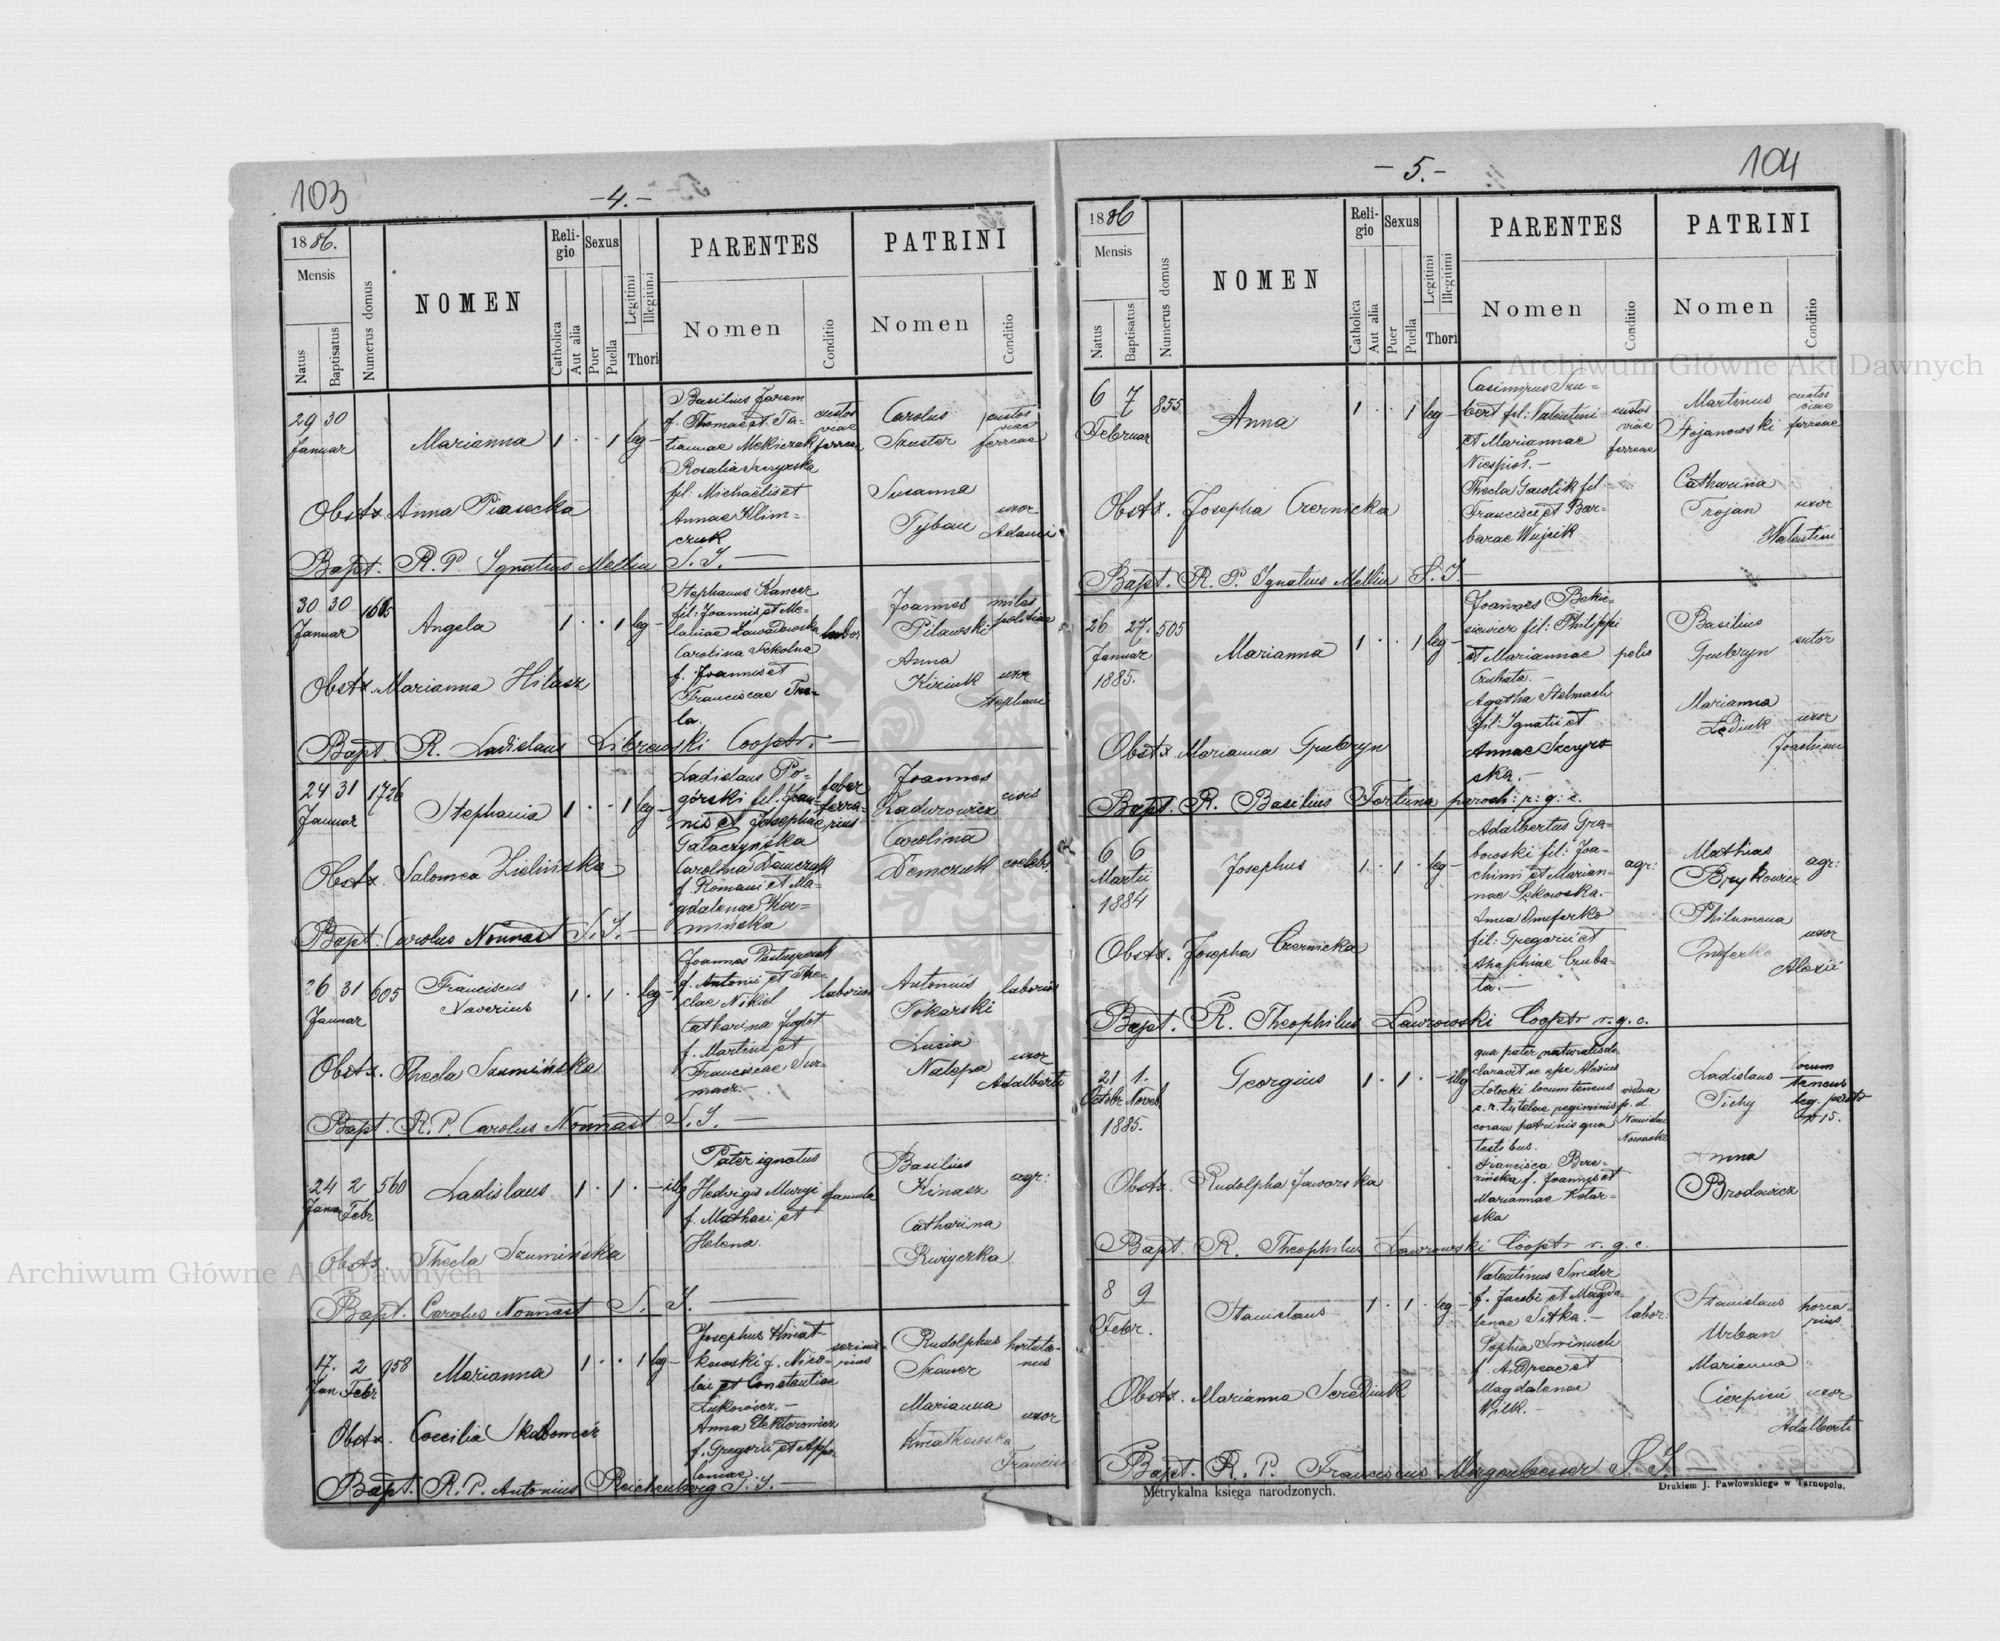 103
- 4. -
1886.
Mensis
Natus
Baptisatus
Numerus domus
NOMEN
Religio
Catholica
Aut alia
Sexus
Puer
Puella
Legitimi
Illegitimi
Thori
PARENTES
Nomen
Conditio
PATRINI
Nomen
Conditio
29 30
Januar
Marianna
1 · · 1 leg -
Basilius Jarem
f. Thomae et Ta-
tianae Mekiczak
Rosalia Szczyrska
fil: Michaëlis et
Annae Klim-
czuk
custos
viae
ferreae
Carolus
Szuster
custos
viae
ferreae
Susanna
Tyban
uxor
Adami
Obstx. Anna Piasecka
Bapt. R. P. Ignatius Mellin S. J. -
30 30
Januar
Angela
1 · · 1 leg -
Stephanus Kancer
fil: Joannis et Me-
laniae Zawadowska
Carolina Szkolna
f. Joannis et
Franciscae
labor
Joannes
Pilawski
miles
Anna
Kiziuk
uxor
Stephani
Obstx. Marianna Hilasz
Bapt. R. Ladislaus Librewski Cooptr. -
24 31 1726
Januar
Stephania
1 · · 1 leg -
Ladislaus Po-
górski fil. Joan-
nis et Josephae
Gałaczyńska
Carolina Demczuk
f. Romani et Ma-
gdalenae Kor-
mińska
faber
ferra-
rius
Joannes
Zadurowicz
civis
Carolina
Demczuk
coelebs
Obstx. Salomea Zielińska
Bapt. Carolus Nonnast S. J. -
26 31 605
Januar
Franciscus
Xaverius
1 · 1 · leg -
Joannes Pastuszczak
f. Antonii et The-
clae Nikiel
Catharina Juglot
f. Martini et
Franciscae Sur-
macz. -
laborios
Antonius
Tokarski
laborios
Lucia
Nalepa
uxor
Adalberti
Obstx. Thecla Szumińska
Bapt. R. P. Carolus Nonnast S. J. -
24 2 560
Januar Febr
Ladislaus
1 · 1 · - illg
Pater ignotus
Hedvigis Muryj
f. Mathaei et
Helena.
famula
Basilius
Kinasz
agr:
Catharina
Rwiyczka
Obstx. Thecla Szumińska
Bapt. Carolus Nonnast S. J. -
17. 2 958
Jan Febr
Marianna
1 · · 1 leg -
Josephus Kwiat-
kowski f. Nico-
lai et Constantiae
Lukowicz. -
Anna Elektorowicz
f. Gregorii et Appo
loniae.
Rudolphus
Szauer
hortula-
nus
Marianna
Kwiatkowska
uxor
Francisci
Obstx. Coecilia Skałomeić
Bapt. R. P. Antonius Reichenberg S. J. -
- 5. -
104
1886
Mensis
Natus
Baptisatus
Numerus domus
NOMEN
Religio
Catholica
Aut alia
Sexus
Puer
Puella
Legitimi
Illegitimi
Thori
PARENTES
Nomen
Conditio
PATRINI
Nomen
Conditio
6 7 855
Februar
Anna
1 · · 1 leg -
Casimirus Szu-
bert fil: Valentini
et Mariannae
Niespioł. -
Thecla Gawlik fil.
Francisci et Bar-
barae Wujcik
custos
viae
ferreae
Martinus
Stojanowski
custos
viae
ferreae
Catharina
Trojan
uxor
Walentini
Obstx. Josepha Czernicka
Bapt. R. P. Ignatius Mellin S. J. -
26 27. 505
Januar
1885.
Marianna
1 · · 1 leg -
Joannes Bekie-
siewicz fil: Philippi
et Mariannae
Czubata. -
Agatha Stelmach
fil: Ignatii et
Annae Szczyr-
ska. -
pelio
Basilius
Grubryn
sutor
Marianna
Lediuk
uxor
Joachimi
Obstx Marianna Grubryn
Bapt. R. Basilius Fortuna paroch: r: g: c.
6 6
Martii
1884
Josephus
1 · 1 · leg -
Adalbertus Gra-
bowski fil: Joa-
chimi et Marian-
nae Sękowska. -
Anna Onuferko
fil: Gregorii et
Ahaphiae Czuba-
ta. -
agr:
Mathias
Brykowicz
agr:
Philumena
Onuferko
uxor
Alexii
Obstx. Josepha Czernicka
Bapt. R. Theophilus Lawrowski Cooptr r. g. c.
21 1.
Octobr Noveb.
1885.
Georgius
1 · 1 · - illg
qua pater naturalis de
claravit se esse Alexius
Lotocki locum tenens
coram patrinis qua
testibus.
Francisca Bere-
zińska f. Joannis et
Mariannae Kolar-
ska
vidua
p. d.
Ladislaus
Tichy
locum
tenens
Anna
Brodowicz
Obstx. Rudolpha Jaworska
Bapt. R. Theophilus Lawrowski Cooptr r. g. c.
8 9
Febr.
Stanislaus
1 · 1 · leg -
Valentinus Snider
f. Jacobi et Magda-
lenae Sitka. -
Sophia Sminuch
f. Andreae et
Magdalenae
Wilk. -
labor:
Stanislaus
Urban
Marianna
Cierpien
uxor
Adalberti
Obstx. Marianna Serediuk
Bapt. R. P. Franciscus Morgenbesser S. J.
Metrykalna księga narodzonych.
Drukiem J. Pawłowskiego w Tarnopolu.
Archiwum Główne Akt Dawnych
Archiwum Główne Akt Dawnych